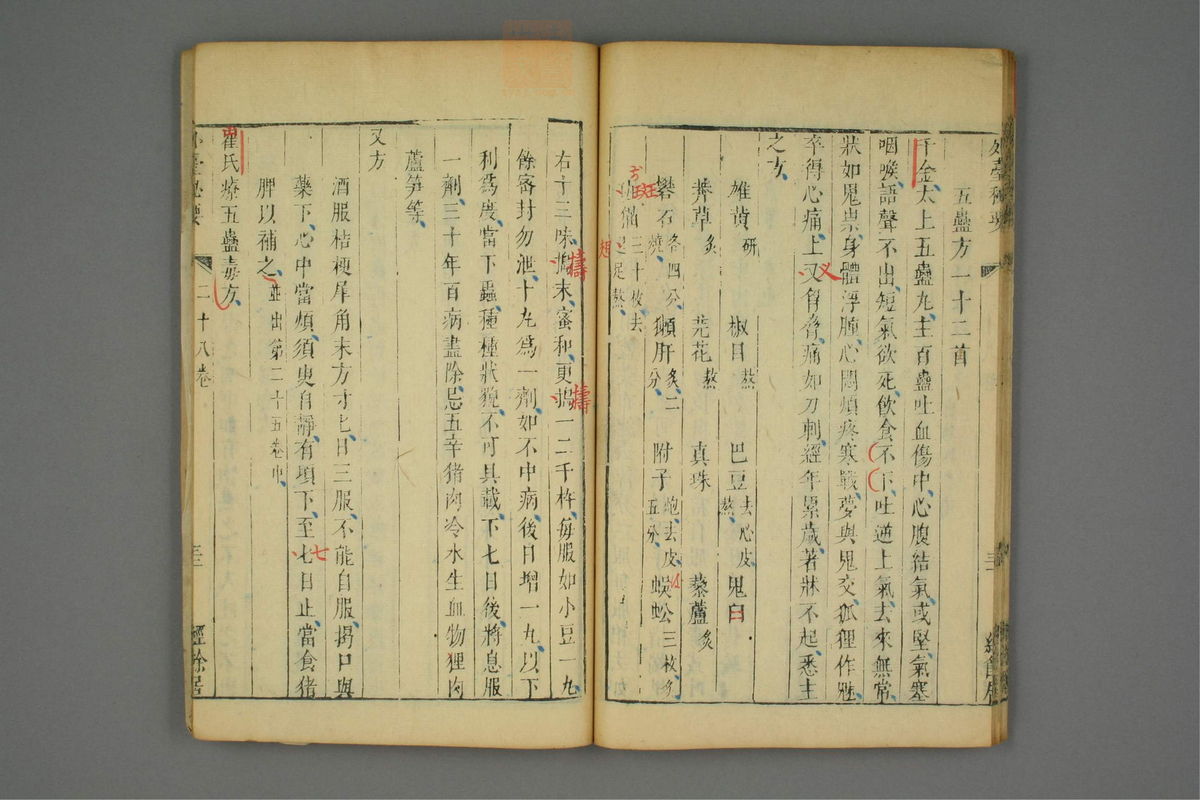 五蠱方一十二首
千金太上五蠱丸主百蠱吐血傷中心腹結氣或堅氣塞
咽喉語聲不出短氣欲死飲食不下吐逆上氣去來無常
狀如鬼祟身體浮腫心悶煩疼寒戰夢與鬼交狐狸作魅
卒得心痛上叉胷脅痛如刀刺經年累歲著牀不起悉主
之方
雄黄研 椒目熬 巴豆去心皮熬 鬼臼
莾草炙 芫花熬 真珠 藜蘆炙
礬石各四分燒 獺肝炙二分 附子炮去皮五分 蜈蚣三枚炙
斑猫三十枚去翅足熬
右十三味擣末蜜和更擣一二千杵每服如小豆一丸
餘密封勿泄十丸爲一劑如不中病後日增一丸以下
利爲度當下蟲種種狀貌不可具載下七日後將息服
一劑三十年百病盡除忌五辛猪肉冷水生血物狸肉
蘆笋等
又方
酒服桔梗犀角末方寸匕日三服不能自服揭口與
藥下心中當煩須臾自靜有頃下至七日止當食猪
脾以補之並出第二十五卷中
崔氏療五蠱毒方
二十八卷
經餘居